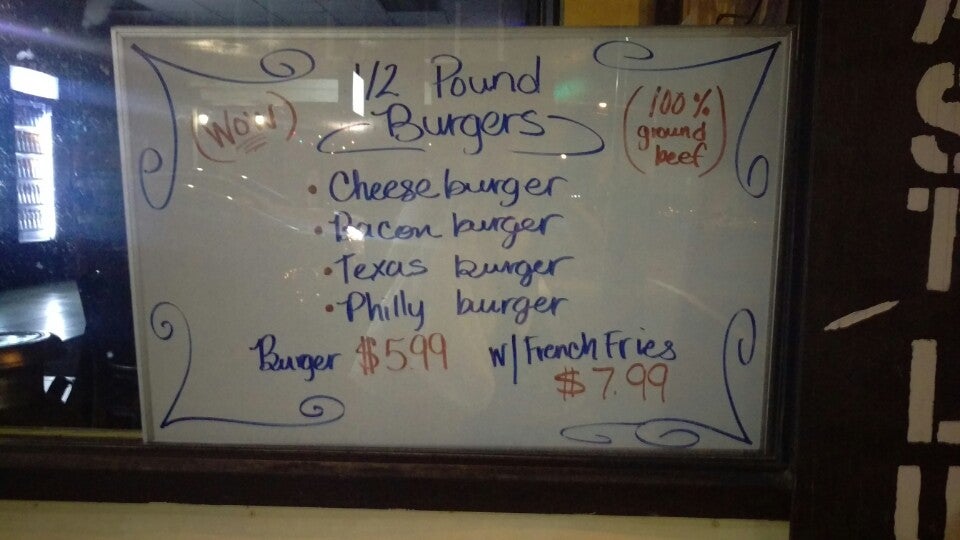 1/2 Pound
Burgers
(WOW)
(100%
ground
beef)
• Cheeseburger
• Bacon burger
• Texas burger
• Philly burger
Burger $5.99
w/ French Fries
$7.99